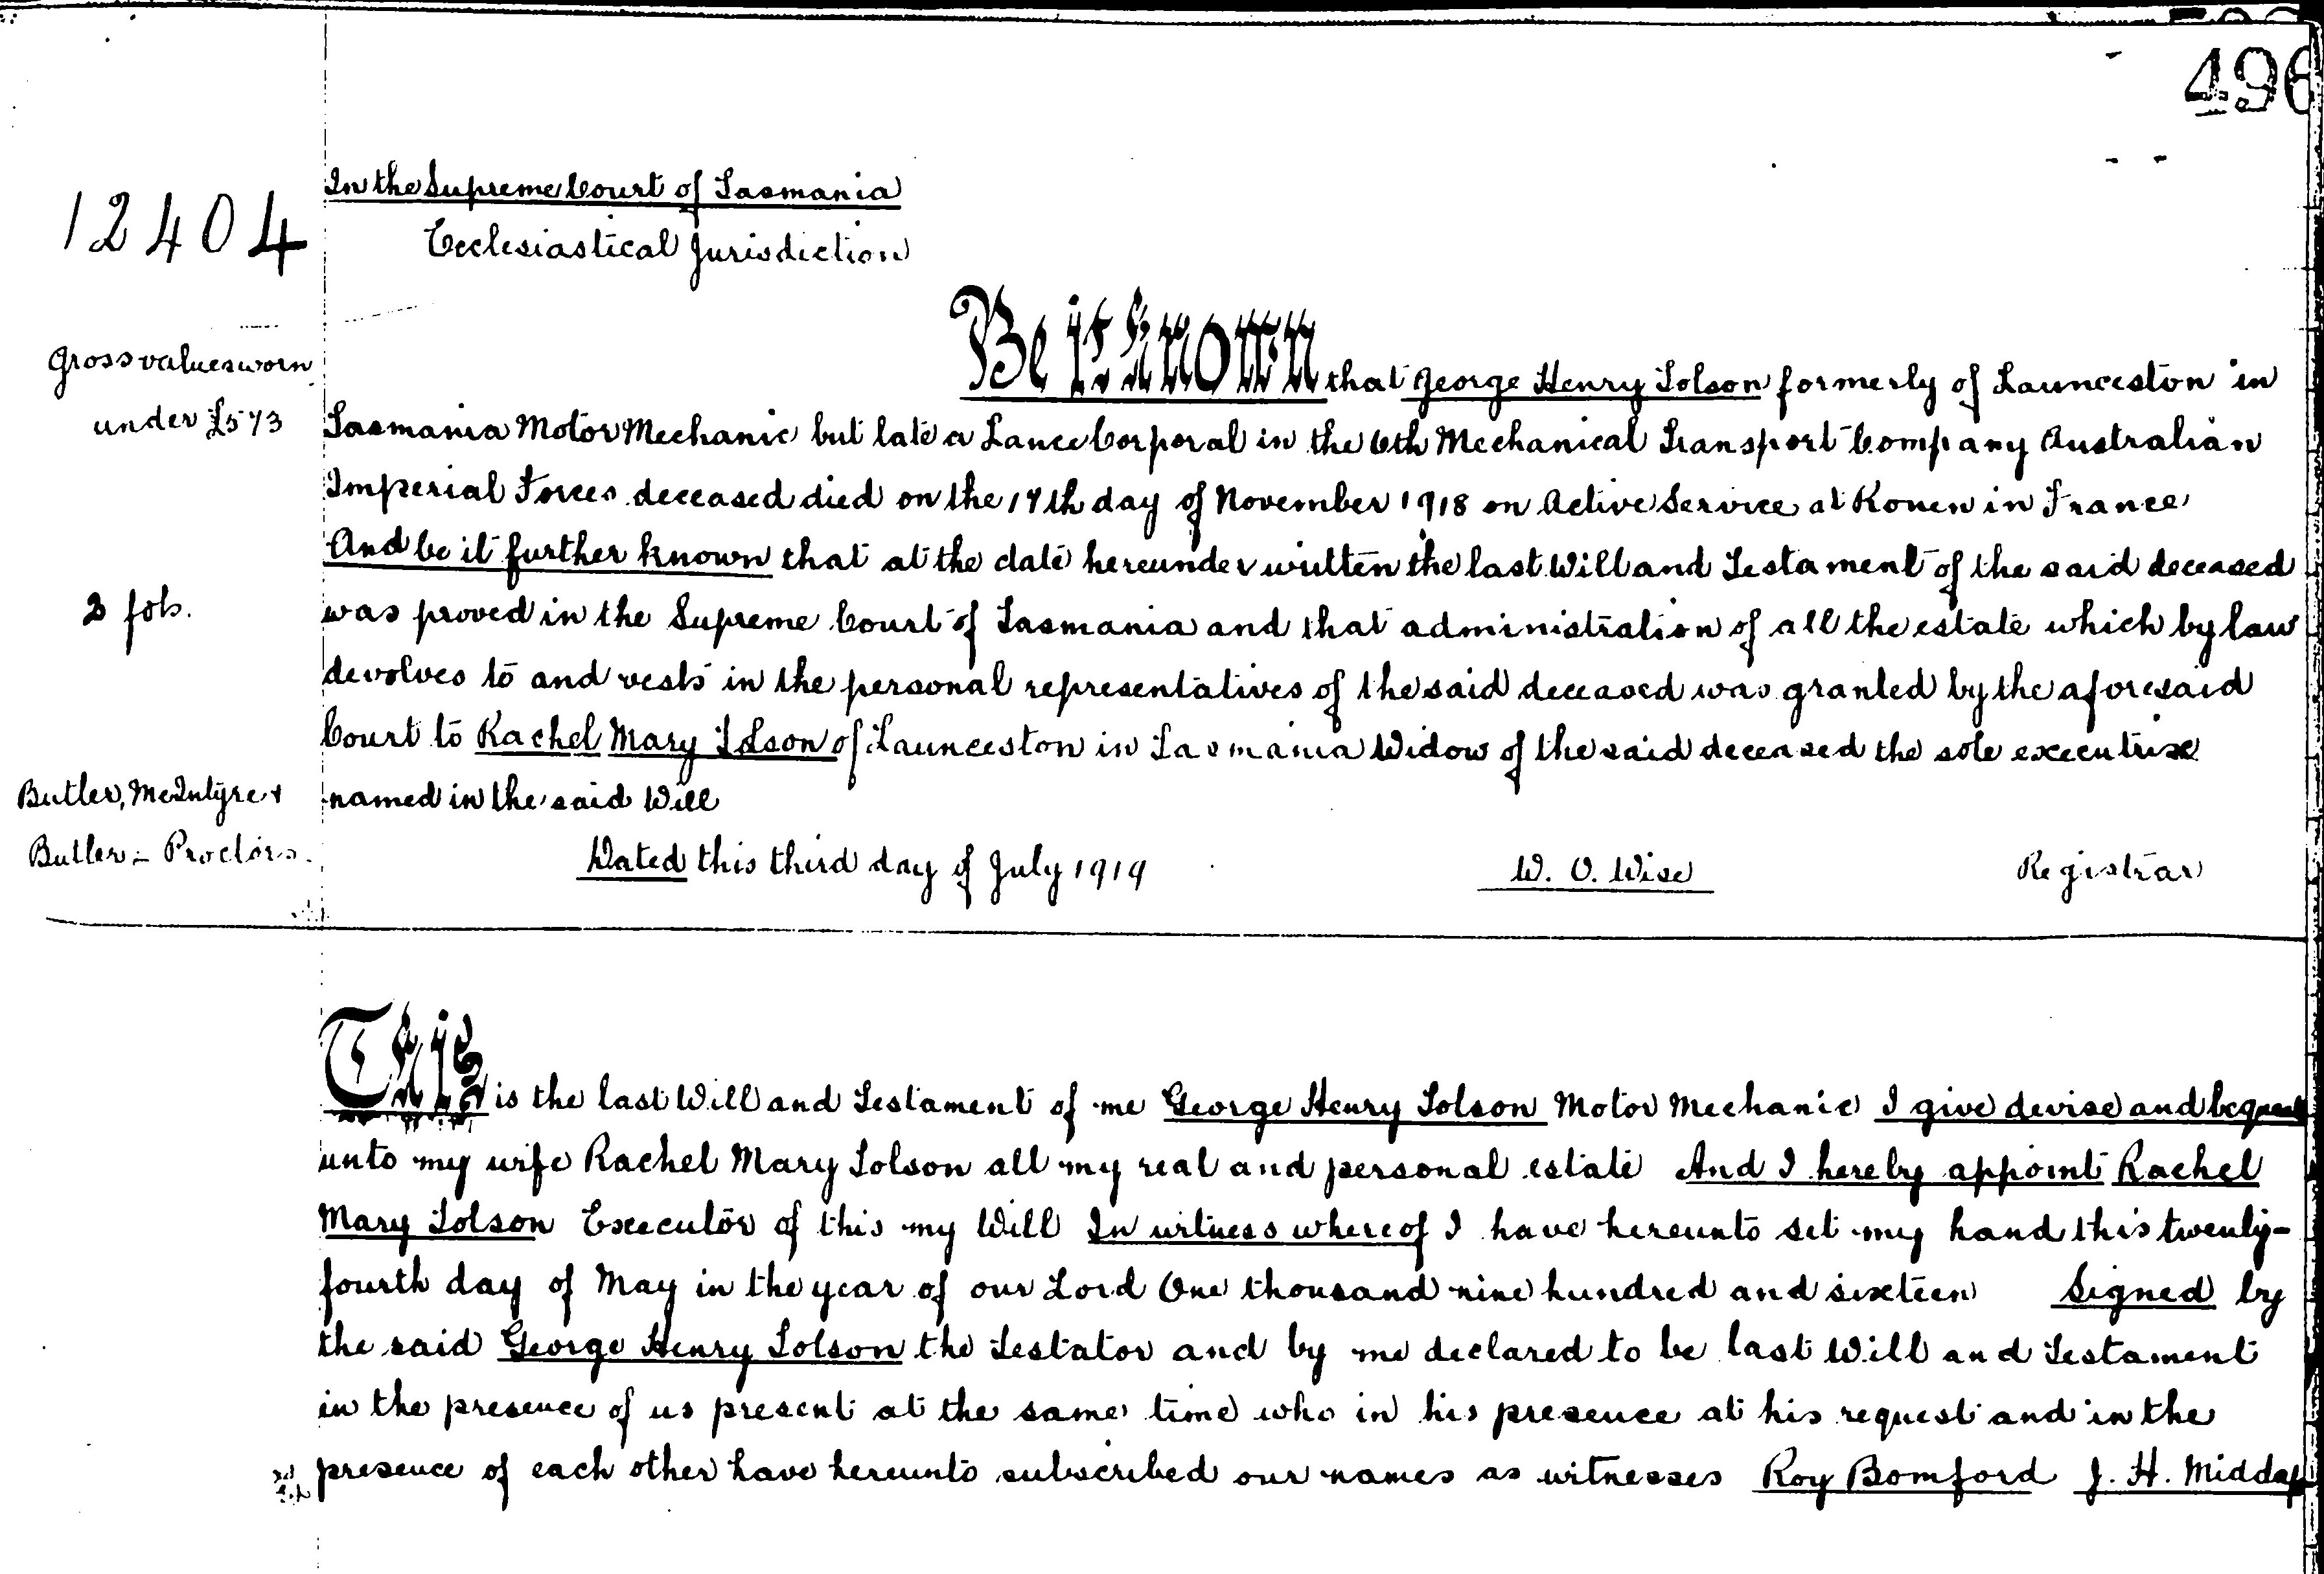 496
12404
In the Supreme Court of Tasmania
Ecclesiastical Jurisdiction
Gross value sworn
under £573
Be it known that George Henry Tolson formerly of Launceston in
Tasmania Motor Mechanic but late a Lance Corporal in the 6th Mechanical Transport Company Australian
Imperial Forces deceased died on the 17th day of November 1918 on Active Service at Rouen in France
And be it further known that at the date hereunder written the last Will and Testament of the said deceased
3 fols.
was proved in the Supreme Court of Tasmania and that administration of all the estate which by law
devolves to and vests in the personal representatives of the said deceased was granted by the aforesaid
Court to Rachel Mary Tolson of Launceston in Tasmania Widow of the said deceased the sole executrix
Butler, McIntyre &
named in the said Will
Butler - Proctors.
Dated this third day of July 1919 W. O. Wise Registrar
This is the last Will and Testament of me George Henry Tolson Motor Mechanic I give devise and
unto my wife Rachel Mary Tolson all my real and personal estate And I hereby appoint Rachel
Mary Tolson Executor of this my Will In witness whereof I have hereunto set my hand this twenty-
fourth day of May in the year of our Lord One thousand nine hundred and sixteen Signed by
the said George Henry Tolson the Testator and by me declared to be last Will and Testament
in the presence of us present at the same time who in his presence at his request and in the
presence of each other have hereunto subscribed our names as witnesses Roy Bomford J. H.